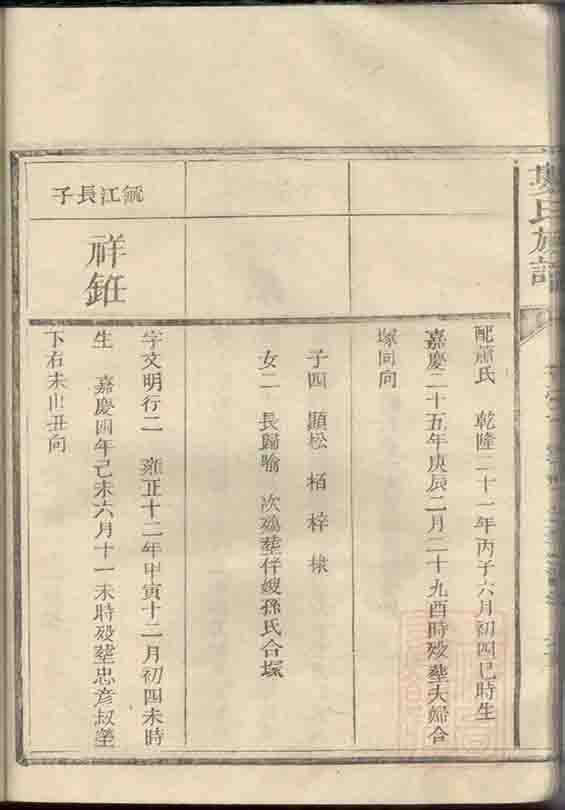 氏族譜
配蕭氏 乾隆二十一年丙子六月初四巳時生
嘉慶二十五年庚辰二月二十九酉時歿塟夫婦合
塚同向
子四 顯松 栢 梓 棣
女二 長歸喻 次殤塟仔嫂孫氏合塚
江長子
祥
字文明行二 雍正十二年甲寅十二月初四未時
生 嘉慶四年己未六月十一未時歿塟忠彥叔塋
下右未山丑向